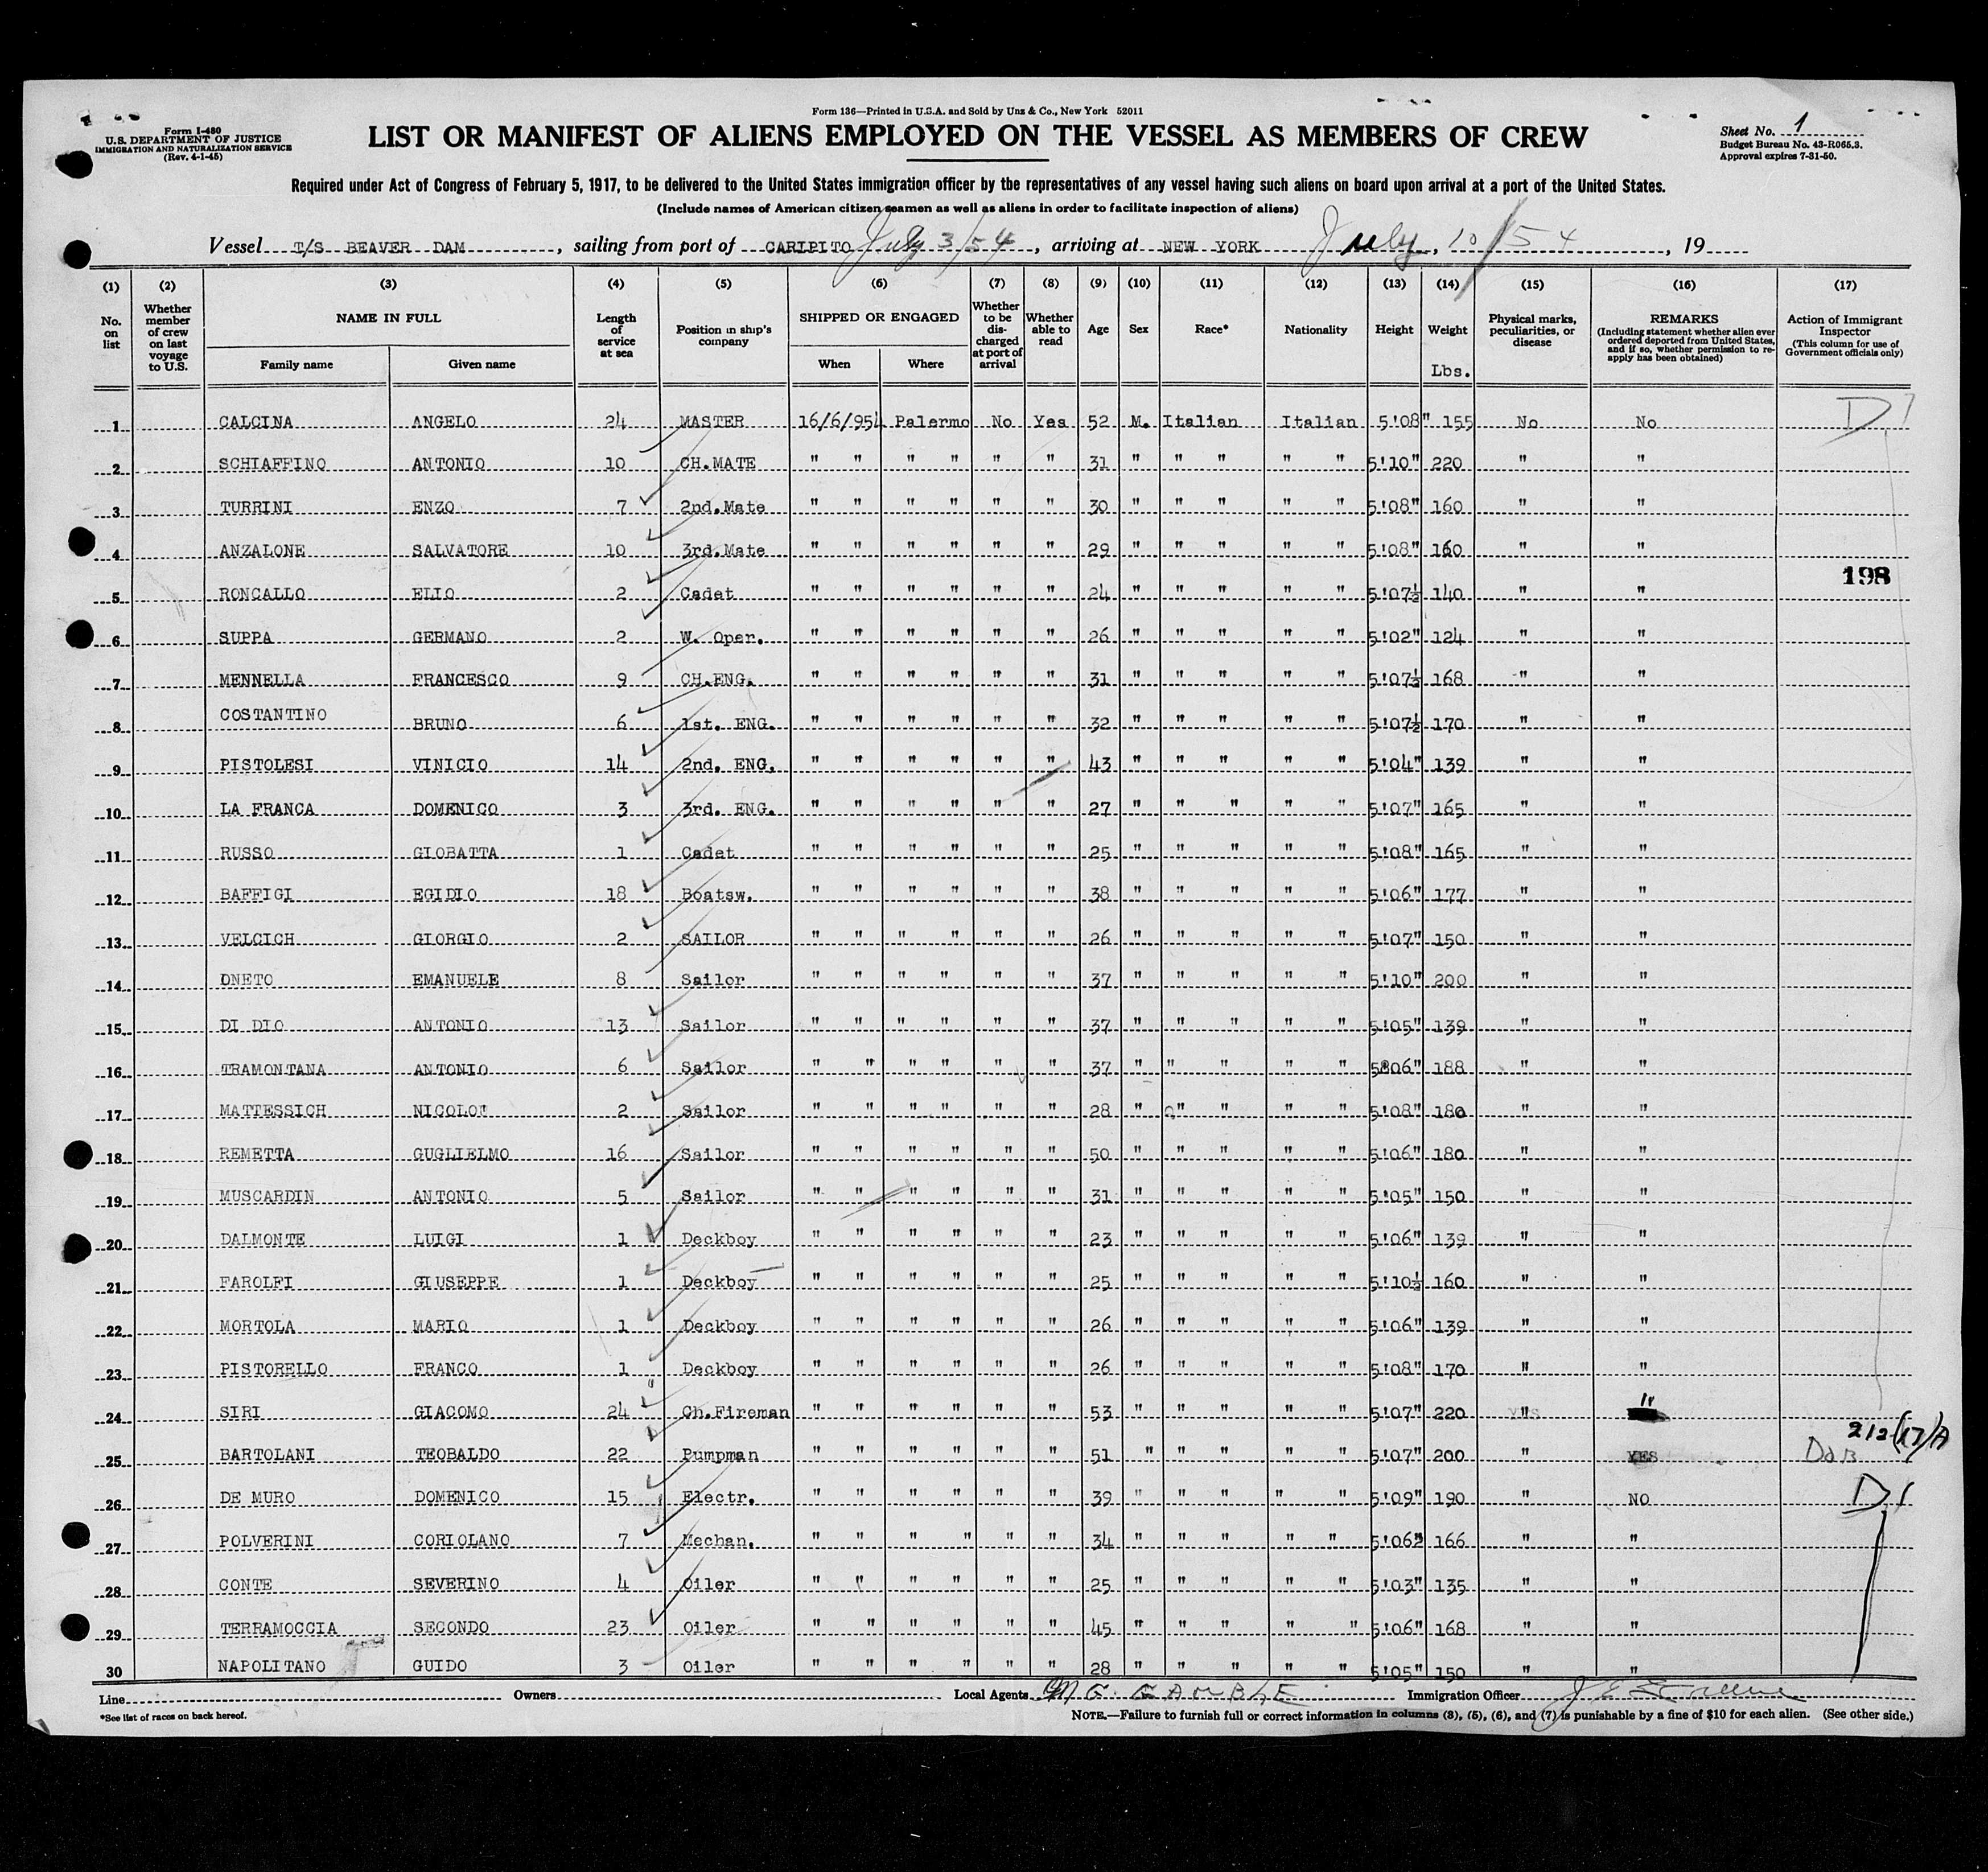 Form 136—Printed in U.S.A. and Sold by Unz & Co., New York 52011
Form I-480
U.S. DEPARTMENT OF JUSTICE
IMMIGRATION AND NATURALIZATION SERVICE
(Rev. 4-1-45)
LIST OR MANIFEST OF ALIENS EMPLOYED ON THE VESSEL AS MEMBERS OF CREW
Sheet No. 1
Budget Bureau No. 43-R065.3.
Approval expires 7-31-50.
Required under Act of Congress of February 5, 1917, to be delivered to the United States immigration officer by the representatives of any vessel having such aliens on board upon arrival at a port of the United States.
(Include names of American citizen seamen as well as aliens in order to facilitate inspection of aliens)
Vessel T/S BEAVER DAM, sailing from port of CARIPITO July 3/54, arriving at NEW YORK July, 10/54, 19
(1) No. on list
(2) Whether member of crew on last voyage to U.S.
(3) NAME IN FULL Family name Given name
(4) Length of service at sea
(5) Position in ship's company
(6) SHIPPED OR ENGAGED When Where
(7) Whether to be discharged at port of arrival
(8) Whether able to read
(9) Age
(10) Sex
(11) Race*
(12) Nationality
(13) Height
(14) Weight Lbs.
(15) Physical marks, peculiarities, or disease
(16) REMARKS (Including statement whether alien ever ordered deported from United States, and if so, whether permission to reapply has been obtained)
(17) Action of Immigrant Inspector (This column for use of Government officials only)
1 CALCINA ANGELO 24 MASTER 16/6/954 Palermo No Yes 52 M. Italian Italian 5'08" 155 No No D
2 SCHIAFFINO ANTONIO 10 CH.MATE " " " " " " 31 " " " " " 5'10" 220 " "
3 TURRINI ENZO 7 2nd.Mate " " " " " " 30 " " " " " 5'08" 160 " "
4 ANZALONE SALVATORE 10 3rd.Mate " " " " " " 29 " " " " " 5'08" 160 " "
198
5 RONCALLO ELIO 2 Cadet " " " " " " 24 " " " " " 5'07½ 140 " "
6 SUPPA GERMANO 2 W. Oper. " " " " " " 26 " " " " " 5'02" 124 " "
7 MENNELLA FRANCESCO 9 CH.ENG. " " " " " " 31 " " " " " 5'07½ 168 " "
8 COSTANTINO BRUNO 6 1st. ENG. " " " " " " 32 " " " " " 5'07½ 170 " "
9 PISTOLESI VINICIO 14 2nd. ENG. " " " " " " 43 " " " " " 5'04" 139 " "
10 LA FRANCA DOMENICO 3 3rd. ENG. " " " " " " 27 " " " " " 5'07" 165 " "
11 RUSSO GIOBATTA 1 Cadet " " " " " " 25 " " " " " 5'08" 165 " "
12 BAFFIGI EGIDIO 18 Boatsw. " " " " " " 38 " " " " " 5'06" 177 " "
13 VELCICH GIORGIO 2 SAILOR " " " " " " 26 " " " " " 5'07" 150 " "
14 ONETO EMANUELE 8 Sailor " " " " " " 37 " " " " " 5'10" 200 " "
15 DI DIO ANTONIO 13 Sailor " " " " " " 37 " " " " " 5'05" 139 " "
16 TRAMONTANA ANTONIO 6 Sailor " " " " " " 37 " " " " " 5806" 188 " "
17 MATTESSICH NICOLO' 2 Sailor " " " " " " 28 " " " " " 5'08" 180 " "
18 REMETTA GUGLIELMO 16 Sailor " " " " " " 50 " " " " " 5'06" 180 " "
19 MUSCARDIN ANTONIO 5 Sailor " " " " " " 31 " " " " " 5'05" 150 " "
20 DALMONTE LUIGI 1 Deckboy " " " " " " 23 " " " " " 5'06" 139 " "
21 FAROLFI GIUSEPPE 1 Deckboy " " " " " " 25 " " " " " 5'10½ 160 " "
22 MORTOLA MARIO 1 Deckboy " " " " " " 26 " " " " " 5'06" 139 " "
23 PISTORELLO FRANCO 1 Deckboy " " " " " " 26 " " " " " 5'08" 170 " "
24 SIRI GIACOMO 24 Ch.Fireman " " " " " " 53 " " " " " 5'07" 220 " "
25 BARTOLANI TEOBALDO 22 Pumpman " " " " " " 51 " " " " " 5'07" 200 " YES 212(17)A
26 DE MURO DOMENICO 15 Electr. " " " " " " 39 " " " " " 5'09" 190 " NO D
27 POLVERINI CORIOLANO 7 Mechan. " " " " " " 34 " " " " " 5'06" 166 " "
28 CONTE SEVERINO 4 Oiler " " " " " " 25 " " " " " 5'03" 135 " "
29 TERRAMOCCIA SECONDO 23 Oiler " " " " " " 45 " " " " " 5'06" 168 " "
30 NAPOLITANO GUIDO 3 Oiler " " " " " " 28 " " " " " 5'05" 150 " "
Line Owners Local Agents M G. GAMBLE Immigration Officer
*See list of races on back hereof.
NOTE.—Failure to furnish full or correct information in columns (3), (5), (6), and (7) is punishable by a fine of $10 for each alien. (See other side.)